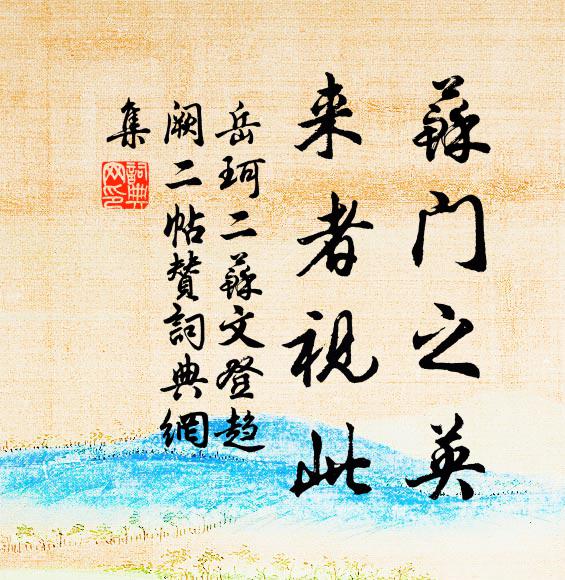 蘇门之英
来者视此
岳珂二蘇文登趙
阙二帖赞詞典網
集
詞典
网印